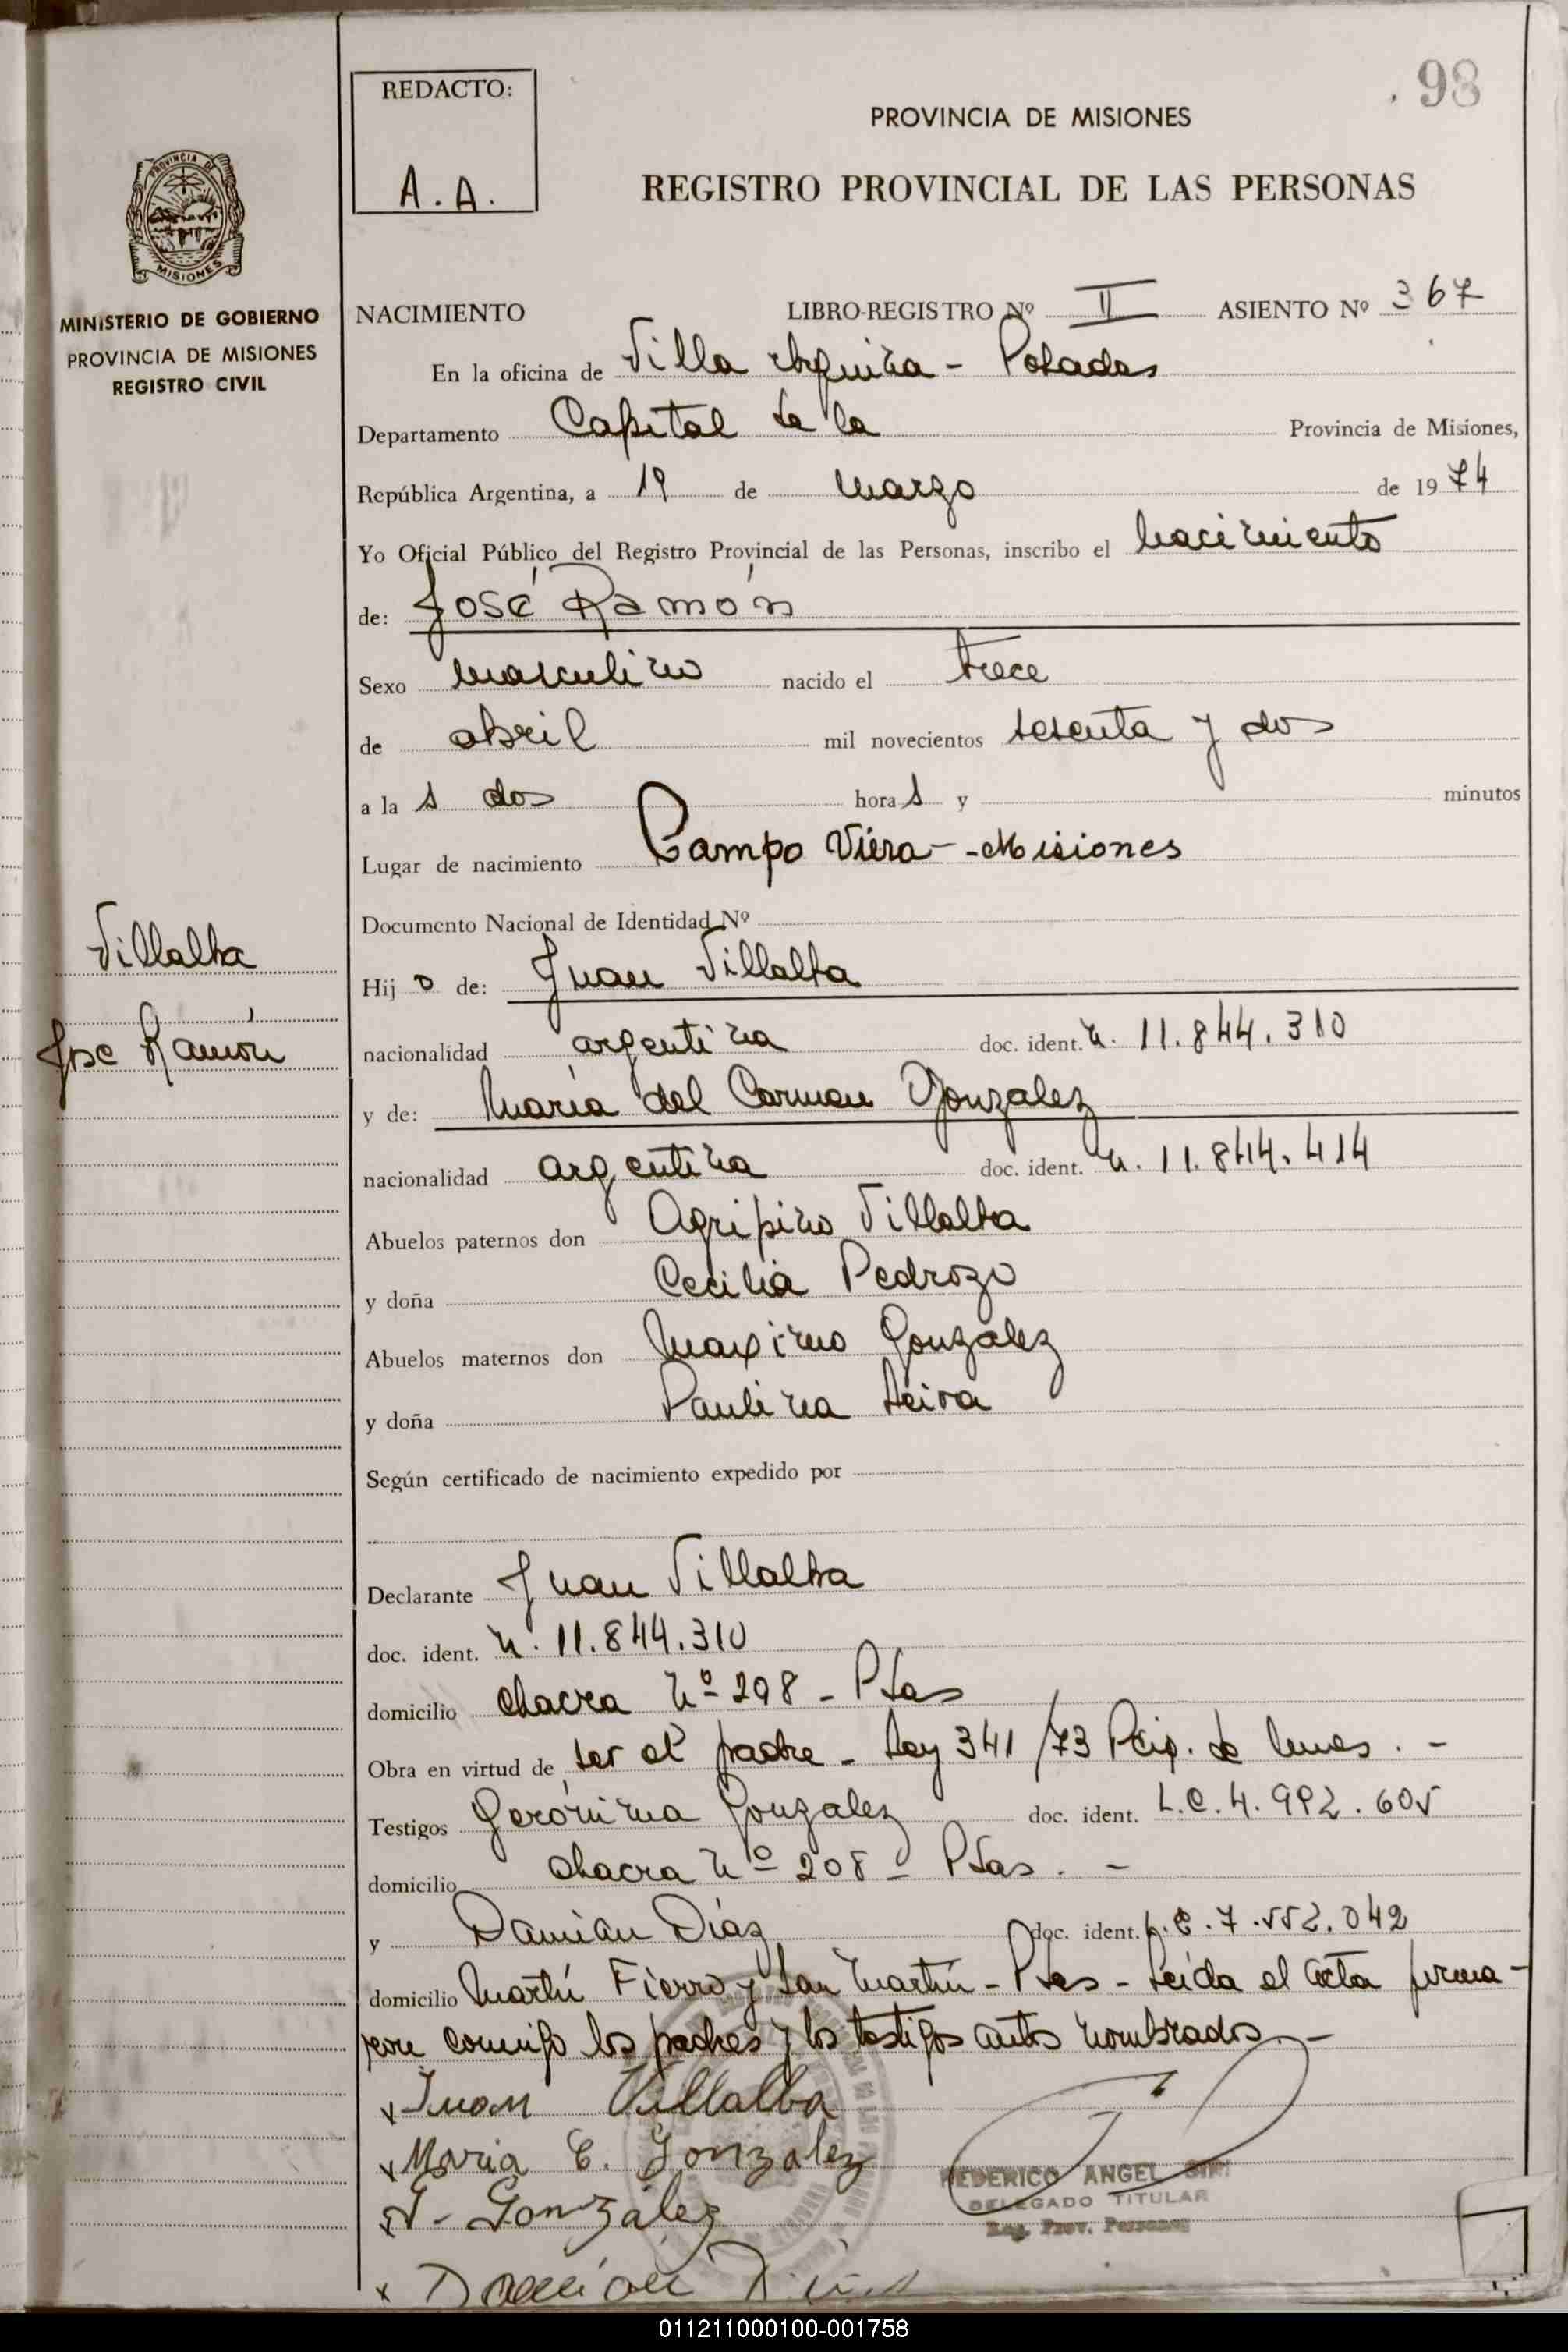 98
REDACTO:
A.A.
PROVINCIA DE MISIONES
REGISTRO PROVINCIAL DE LAS PERSONAS
PROVINCIA DE
MISIONES
MINISTERIO DE GOBIERNO
PROVINCIA DE MISIONES
REGISTRO CIVIL
NACIMIENTO LIBRO-REGISTRO Nº II ASIENTO Nº 367
En la oficina de Villa Urquiza - Posadas
Departamento Capital de la Provincia de Misiones,
República Argentina, a 19 de marzo de 1974
Yo Oficial Público del Registro Provincial de las Personas, inscribo el nacimiento
de: José Ramón
Sexo masculino nacido el trece
de abril mil novecientos setenta y dos
a la s dos hora s y minutos
Lugar de nacimiento Campo Viera - Misiones
Documento Nacional de Identidad Nº
Villalba
Hij o de: Juan Villalba
José Ramón
nacionalidad argentina doc. ident. n. 11.844.310
y de: María del Carmen Gonzalez
nacionalidad argentina doc. ident. n. 11.844.414
Abuelos paternos don Agripino Villalba
y doña Cecilia Pedrozo
Abuelos maternos don Maximo Gonzalez
y doña Paulina Leiva
Según certificado de nacimiento expedido por
Declarante Juan Villalba
doc. ident. n. 11.844.310
domicilio chacra nº 298 - Pdas
Obra en virtud de ser el padre - Ley 341/73 de . -
Testigos Gerónima Gonzalez doc. ident. L.C. 4.992.605
domicilio chacra nº 208 - Pdas. -
y Damián Díaz doc. ident. L.E. 7.552.042
domicilio Martín Fierro y San Martín - Pdas - Leída el acta firma-
ron conmigo los padres y los testigos antes nombrados. -
x Juan Villalba
x Maria C. Gonzalez
x G. González
x Damián Díaz
FEDERICO ANGEL
DELEGADO TITULAR
Reg. Prov. Personas
011211000100-001758